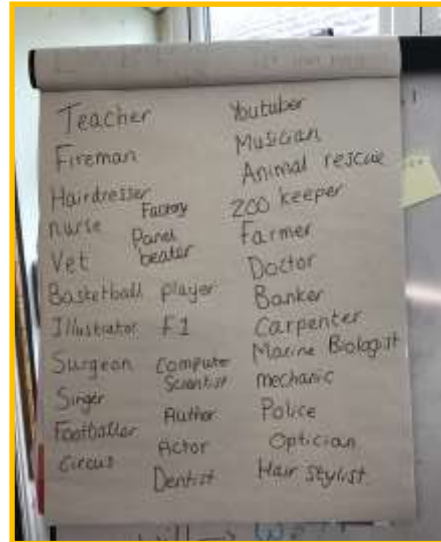 Teacher
Fireman
Hairdresser
nurse
Vet
Basketball player
Illustrator
Surgeon
Singer
Footballer
Circus
Factory
Panel
beater
F1
Computer
Scientist
Author
Actor
Dentist
Youtuber
Musician
Animal rescue
zoo keeper
Farmer
Doctor
Banker
Carpenter
Marine Biologist
mechanic
Police
Optician
Hair stylist